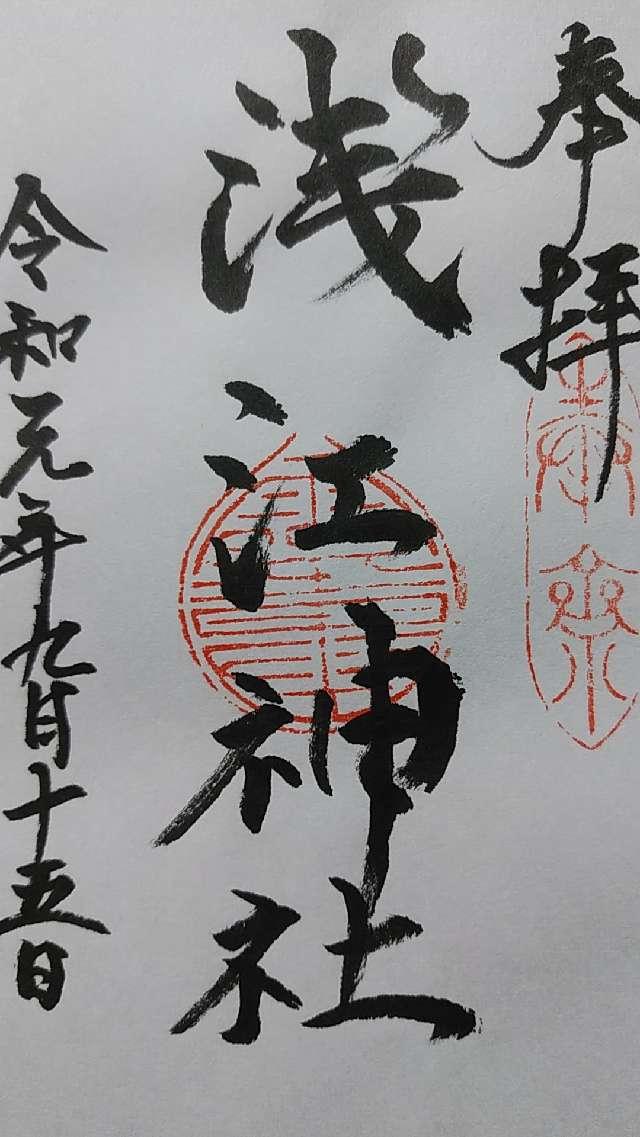 奉拝
浅江神社
令和元年九月十五日